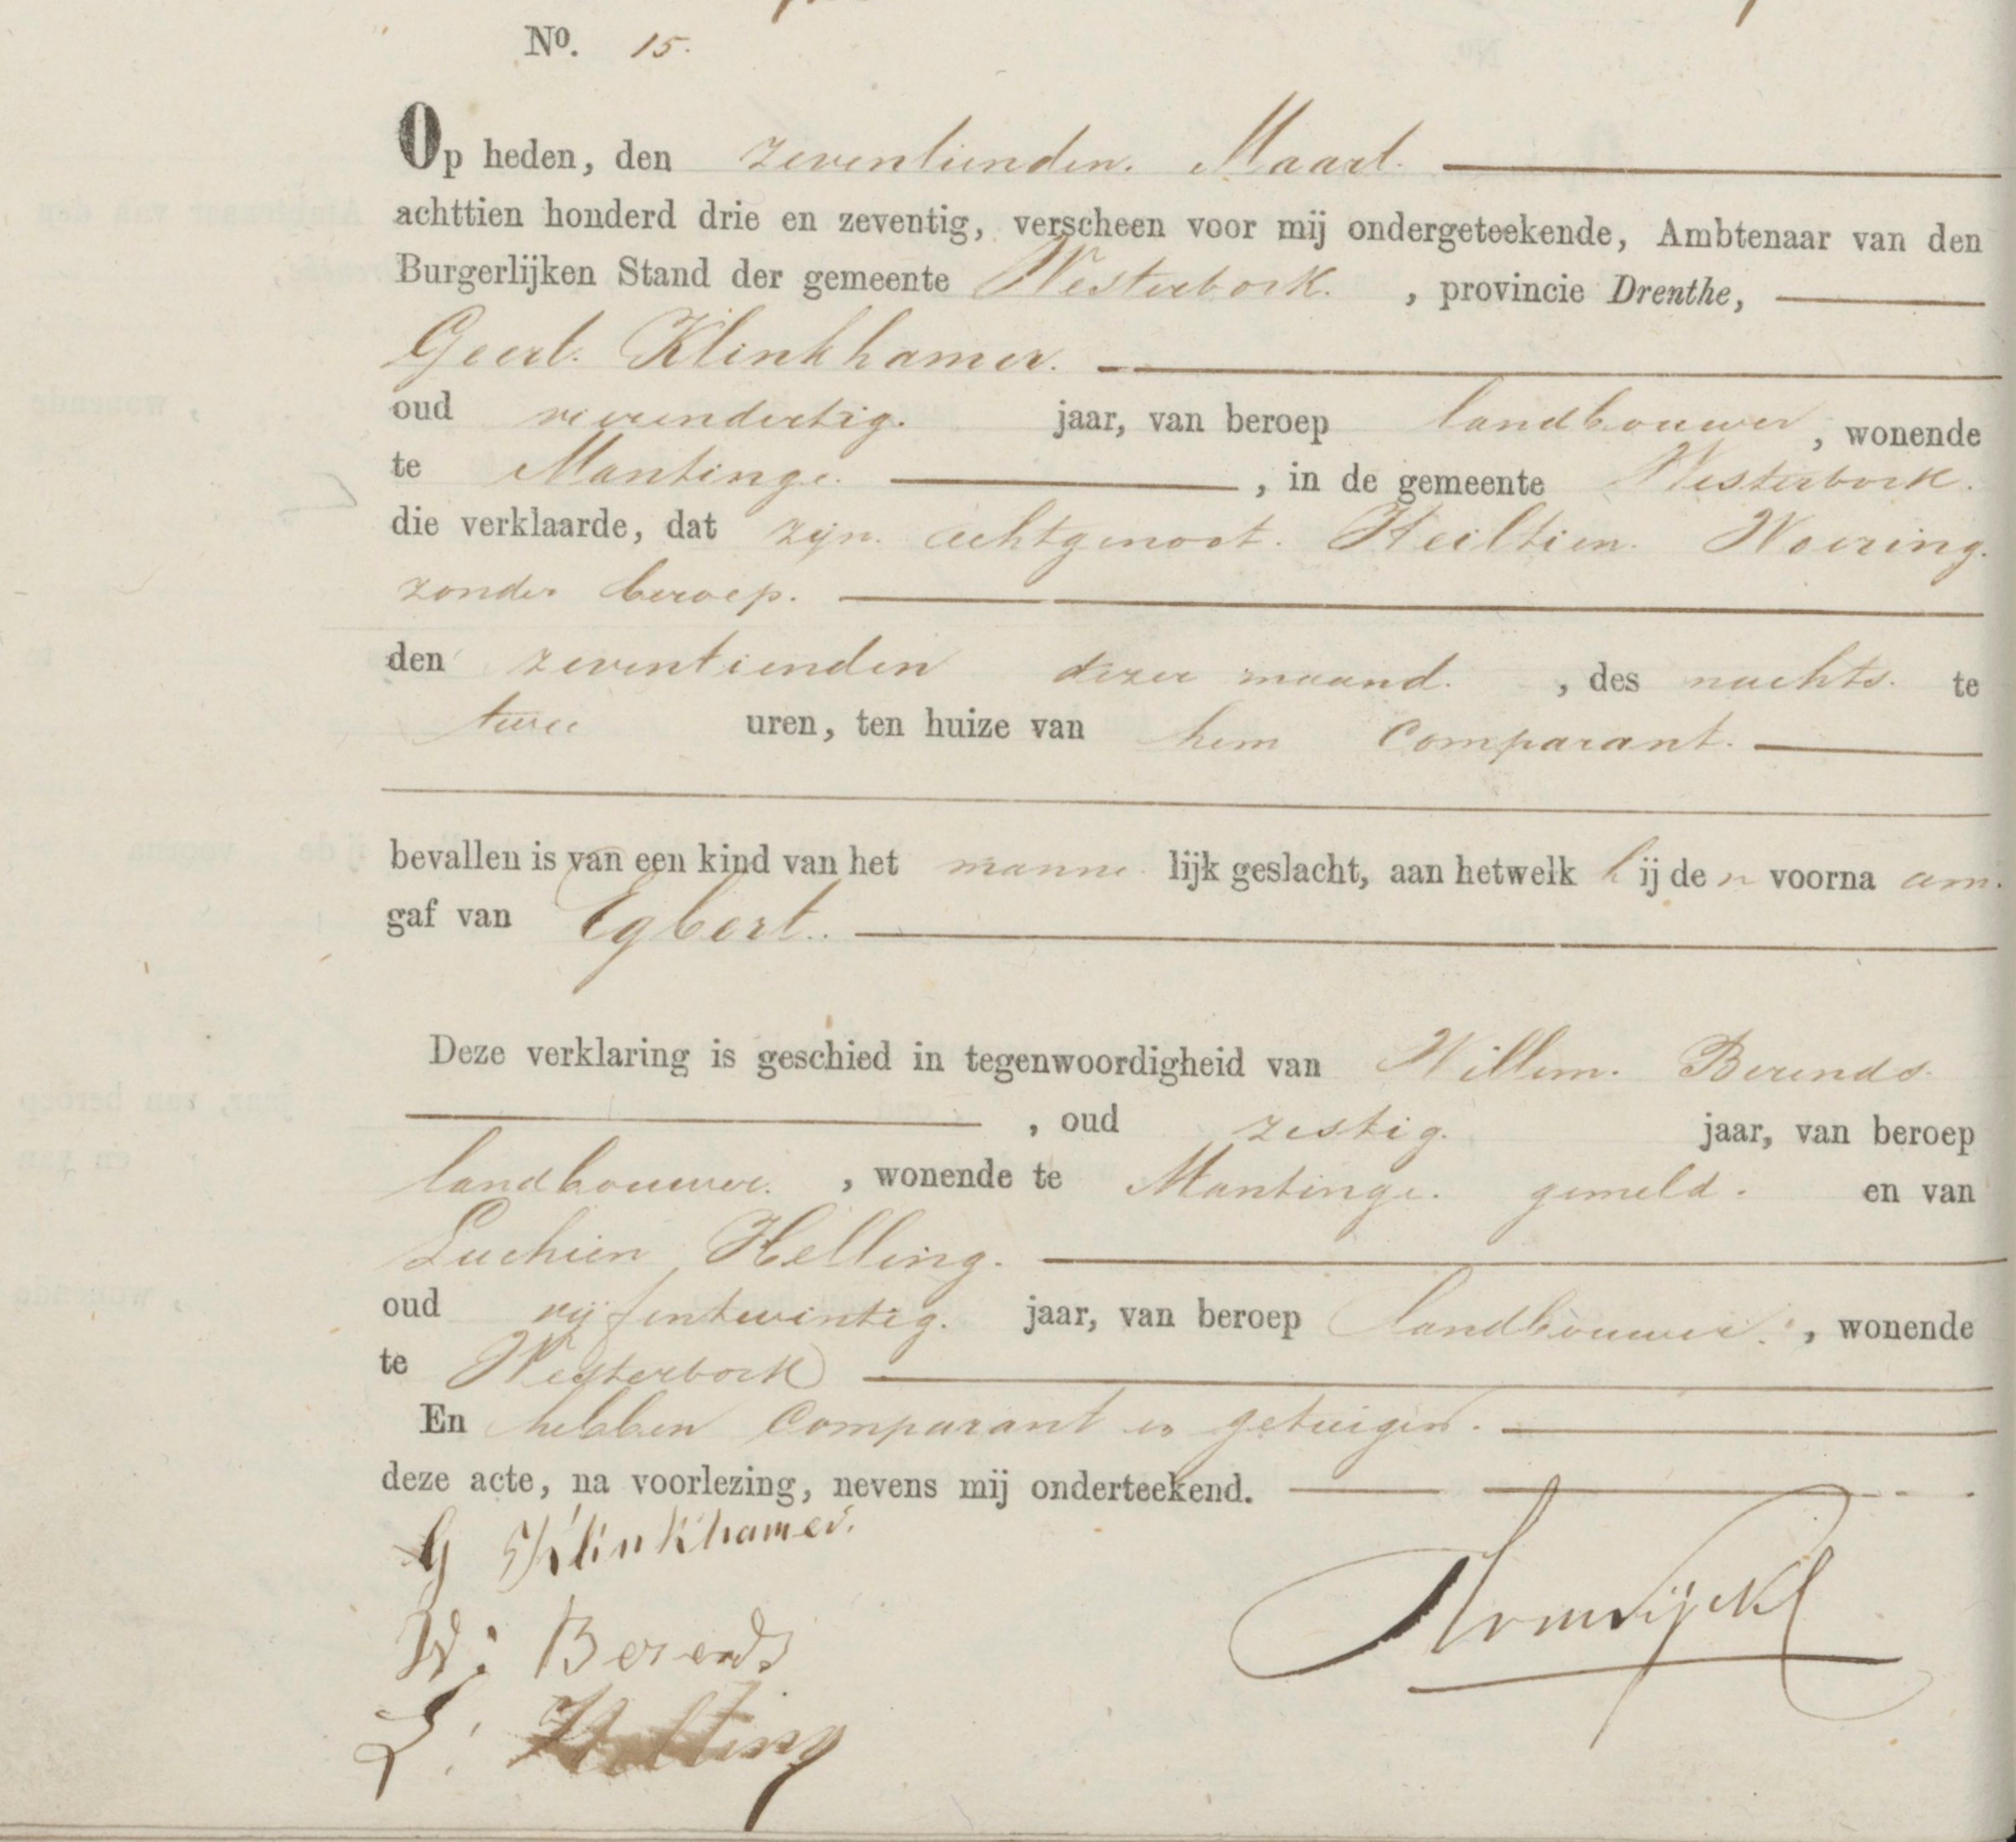 No. 15.
Op heden, den zeventienden. Maart.
achttien honderd drie en zeventig, verscheen voor mij ondergeteekende, Ambtenaar van den
Burgerlijken Stand der gemeente Westerbork. , provincie Drenthe,
Geert. Klinkhamer.
oud vierendertig. jaar, van beroep landbouwer, wonende
te Mantinge. , in de gemeente Westerbork.
die verklaarde, dat zijn. echtgenoot. Heiltien. Woering.
zonder beroep.
den zeventienden dezer maand. , des nachts. te
twee uren, ten huize van hem Comparant.
bevallen is van een kind van het manne lijk geslacht, aan hetwelk hij den voorna am.
gaf van Egbert.
Deze verklaring is geschied in tegenwoordigheid van Willem. Berends.
, oud zestig. jaar, van beroep
landbouwer. , wonende te Mantinge. gemeld. en van
Luchien Helling.
oud vijfentwintig. jaar, van beroep landbouwer. , wonende
te Westerbork
En hebben Comparant en getuigen.
deze acte, na voorlezing, nevens mij onderteekend.
G Klinkhamer.
W: Berends
L: